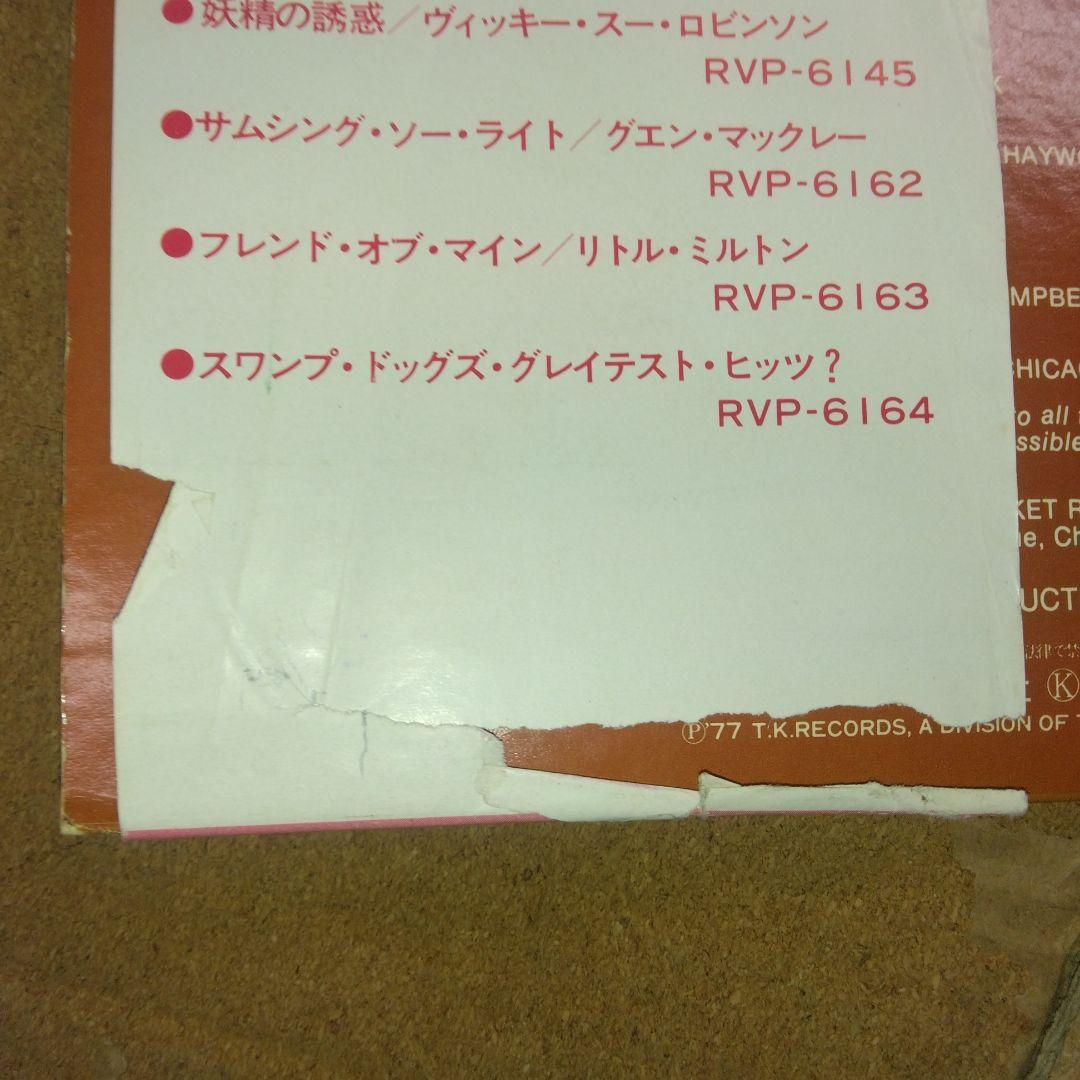 ●妖精の誘惑／ヴィッキー・スー・ロビンソン
RVP-6145
●サムシング・ソー・ライト／グエン・マックレー
RVP-6162
●フレンド・オブ・マイン／リトル・ミルトン
RVP-6163
●スワンプ・ドッグズ・グレイテスト・ヒッツ?
RVP-6164
HAYW
MPBE
CHICAG
to all
ssible
KET R
ue, Ch
UCT
法律で禁
Ⓚ
Ⓟ'77 T.K.RECORDS, A DIVISION OF T